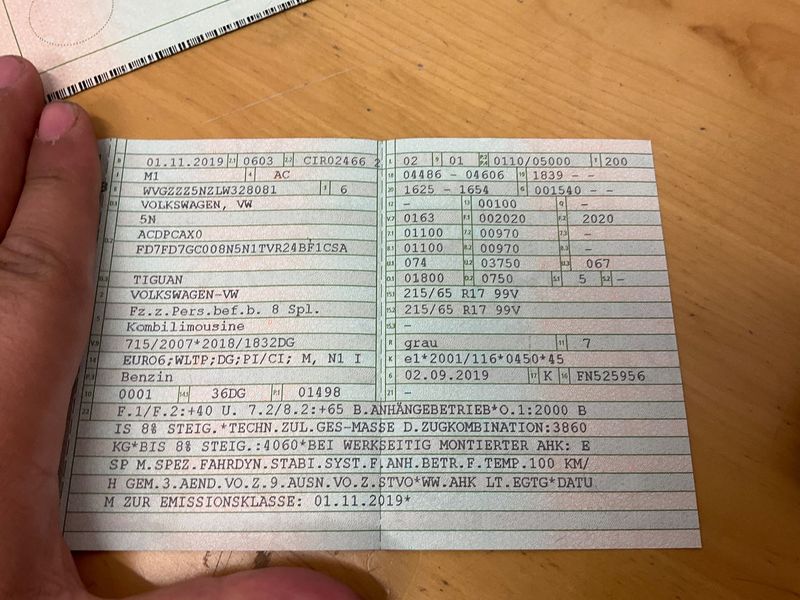 B 01.11.2019 2.1 0603 2.2 CIR02466 2
J M1 4 AC
E WVGZZZ5NZLW328081 3 6
D.1 VOLKSWAGEN, VW
5N
D.2 ACDPCAX0
FD7FD7GC008N5N1TVR24BF1CSA
D.3 TIGUAN
2 VOLKSWAGEN-VW
5 Fz.z.Pers.bef.b. 8 Spl.
Kombilimousine
V.9 715/2007*2018/1832DG
14 EURO6;WLTP;DG;PI/CI; M, N1 I
P.3 Benzin
10 0001 14.1 36DG P.1 01498
L 02 9 01 P.2 P.4 0110/05000 T 200
18 04486 - 04606 19 1839 - -
20 1625 - 1654 G 001540 - -
12 - 13 00100 Q -
V.7 0163 F.1 002020 F.2 2020
7.1 01100 7.2 00970 7.3 -
8.1 01100 8.2 00970 8.3 -
U.1 074 U.2 03750 U.3 067
O.1 01800 O.2 0750 S.1 5 S.2 -
15.1 215/65 R17 99V
15.2 215/65 R17 99V
15.3 -
R grau 11 7
K e1*2001/116*0450*45
6 02.09.2019 17 K 16 FN525956
21 -
22 F.1/F.2:+40 U. 7.2/8.2:+65 B.ANHÄNGEBETRIEB*O.1:2000 B
IS 8% STEIG.*TECHN.ZUL.GES-MASSE D.ZUGKOMBINATION:3860
KG*BIS 8% STEIG.:4060*BEI WERKSEITIG MONTIERTER AHK: E
SP M.SPEZ.FAHRDYN.STABI.SYST.F.ANH.BETR.F.TEMP.100 KM/
H GEM.3.AEND.VO.Z.9.AUSN.VO.Z.STVO*WW.AHK LT.EGTG*DATU
M ZUR EMISSIONSKLASSE: 01.11.2019*